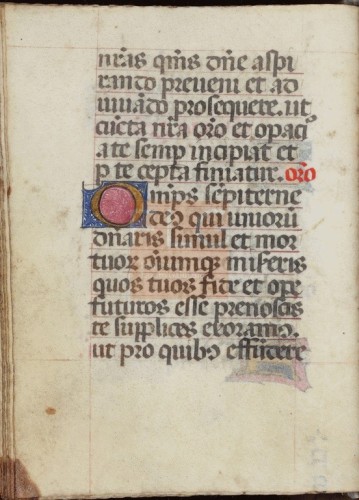 nr̃as qm̃s dñe aspi
rando preveni et ad
iuuãdo prosequere. ut
cũcta nr̃a or̃o et opac̃
a te semp incipiat et
p te cepta finiatur. or̃o
Omp̃s sẽpiterne
deꝰ qui uiuorũ
dñaris simul et mor
tuoꝝ oĩumqꝫ misereris
quos tuos fide et ope
futuros esse prenoscis
te supplices exoramꝰ.
ut pro quibꝰ effũdere